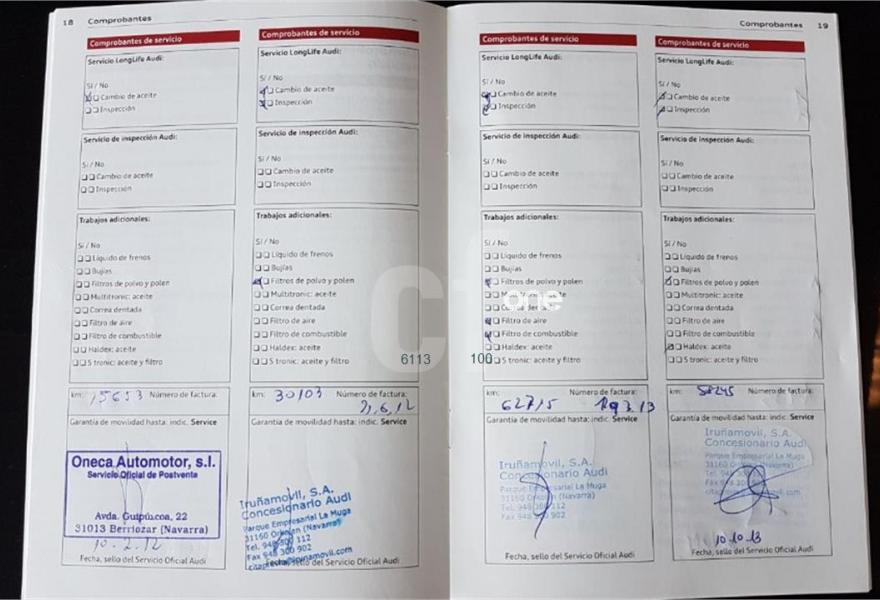 18 Comprobantes
Comprobantes de servicio
Servicio LongLife Audi:
Sí / No
Cambio de aceite
Inspección
Servicio de inspección Audi:
Sí / No
Cambio de aceite
Inspección
Trabajos adicionales:
Sí / No
Líquido de frenos
Bujías
Filtros de polvo y polen
Multitronic: aceite
Correa dentada
Filtro de aire
Filtro de combustible
Haldex: aceite
S tronic: aceite y filtro
km: 15653 Número de factura:
Garantía de movilidad hasta: indic. Service
Oneca Automotor, s.l.
Servicio Oficial de Postventa
Avda. Guipúzcoa, 22
31013 Berriozar (Navarra)
10.2.12
Fecha, sello del Servicio Oficial Audi
Comprobantes de servicio
Servicio LongLife Audi:
Sí / No
Cambio de aceite
Inspección
Servicio de inspección Audi:
Sí / No
Cambio de aceite
Inspección
Trabajos adicionales:
Sí / No
Líquido de frenos
Bujías
Filtros de polvo y polen
Multitronic: aceite
Correa dentada
Filtro de aire
Filtro de combustible
Haldex: aceite
S tronic: aceite y filtro
km: 30103 Número de factura:
Garantía de movilidad hasta: indic. Service
Iruñamovil, S.A.
Concesionario Audi
Parque Empresarial La Muga
31160 Orkoien (Navarra)
Tel. 948 300 112
Fax 948 300 902
Fecha, sello del Servicio Oficial Audi
6113 100
one
Comprobantes 19
Comprobantes de servicio
Servicio LongLife Audi:
Sí / No
Cambio de aceite
Inspección
Servicio de inspección Audi:
Sí / No
Cambio de aceite
Inspección
Trabajos adicionales:
Sí / No
Líquido de frenos
Bujías
Filtros de polvo y polen
Filtro de aire
Filtro de combustible
Haldex: aceite
S tronic: aceite y filtro
km: 62715 Número de factura:
Garantía de movilidad hasta: indic. Service
Iruñamovil, S.A.
Concesionario Audi
Parque Empresarial La Muga
31160 Orkoien (Navarra)
Fecha, sello del Servicio Oficial Audi
Comprobantes de servicio
Servicio LongLife Audi:
Sí / No
Cambio de aceite
Inspección
Servicio de inspección Audi:
Sí / No
Cambio de aceite
Inspección
Trabajos adicionales:
Sí / No
Líquido de frenos
Bujías
Filtros de polvo y polen
Multitronic: aceite
Correa dentada
Filtro de aire
Filtro de combustible
Haldex: aceite
S tronic: aceite y filtro
km: Número de factura:
Garantía de movilidad hasta: indic. Service
Iruñamovil, S.A.
Concesionario Audi
Parque Empresarial La Muga
10.10.13
Fecha, sello del Servicio Oficial Audi